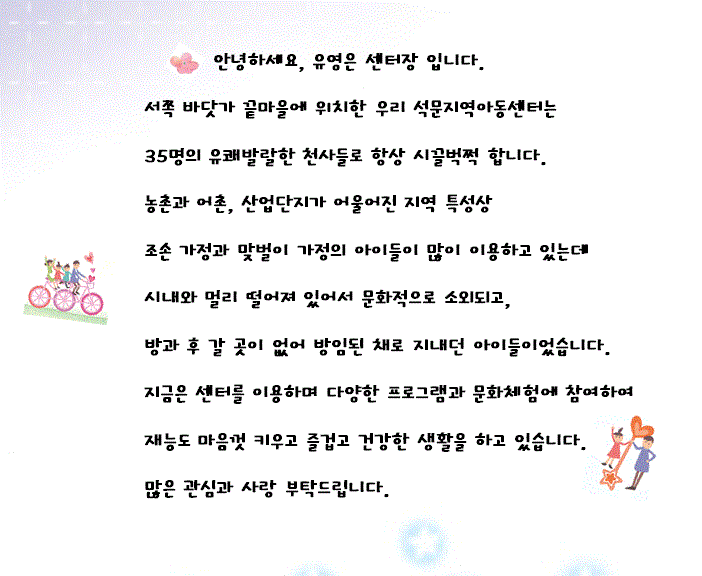 안녕하세요, 유영은 센터장 입니다.
서쪽 바닷가 끝마을에 위치한 우리 석문지역아동센터는
35명의 유쾌발랄한 천사들로 항상 시끌벅쩍 합니다.
농촌과 어촌, 산업단지가 어울어진 지역 특성상
조손 가정과 맞벌이 가정의 아이들이 많이 이용하고 있는데
시내와 멀리 떨어져 있어서 문화적으로 소외되고,
방과 후 갈 곳이 없어 방임된 채로 지내던 아이들이었습니다.
지금은 센터를 이용하며 다양한 프로그램과 문화체험에 참여하여
재능도 마음껏 키우고 즐겁고 건강한 생활을 하고 있습니다.
많은 관심과 사랑 부탁드립니다.